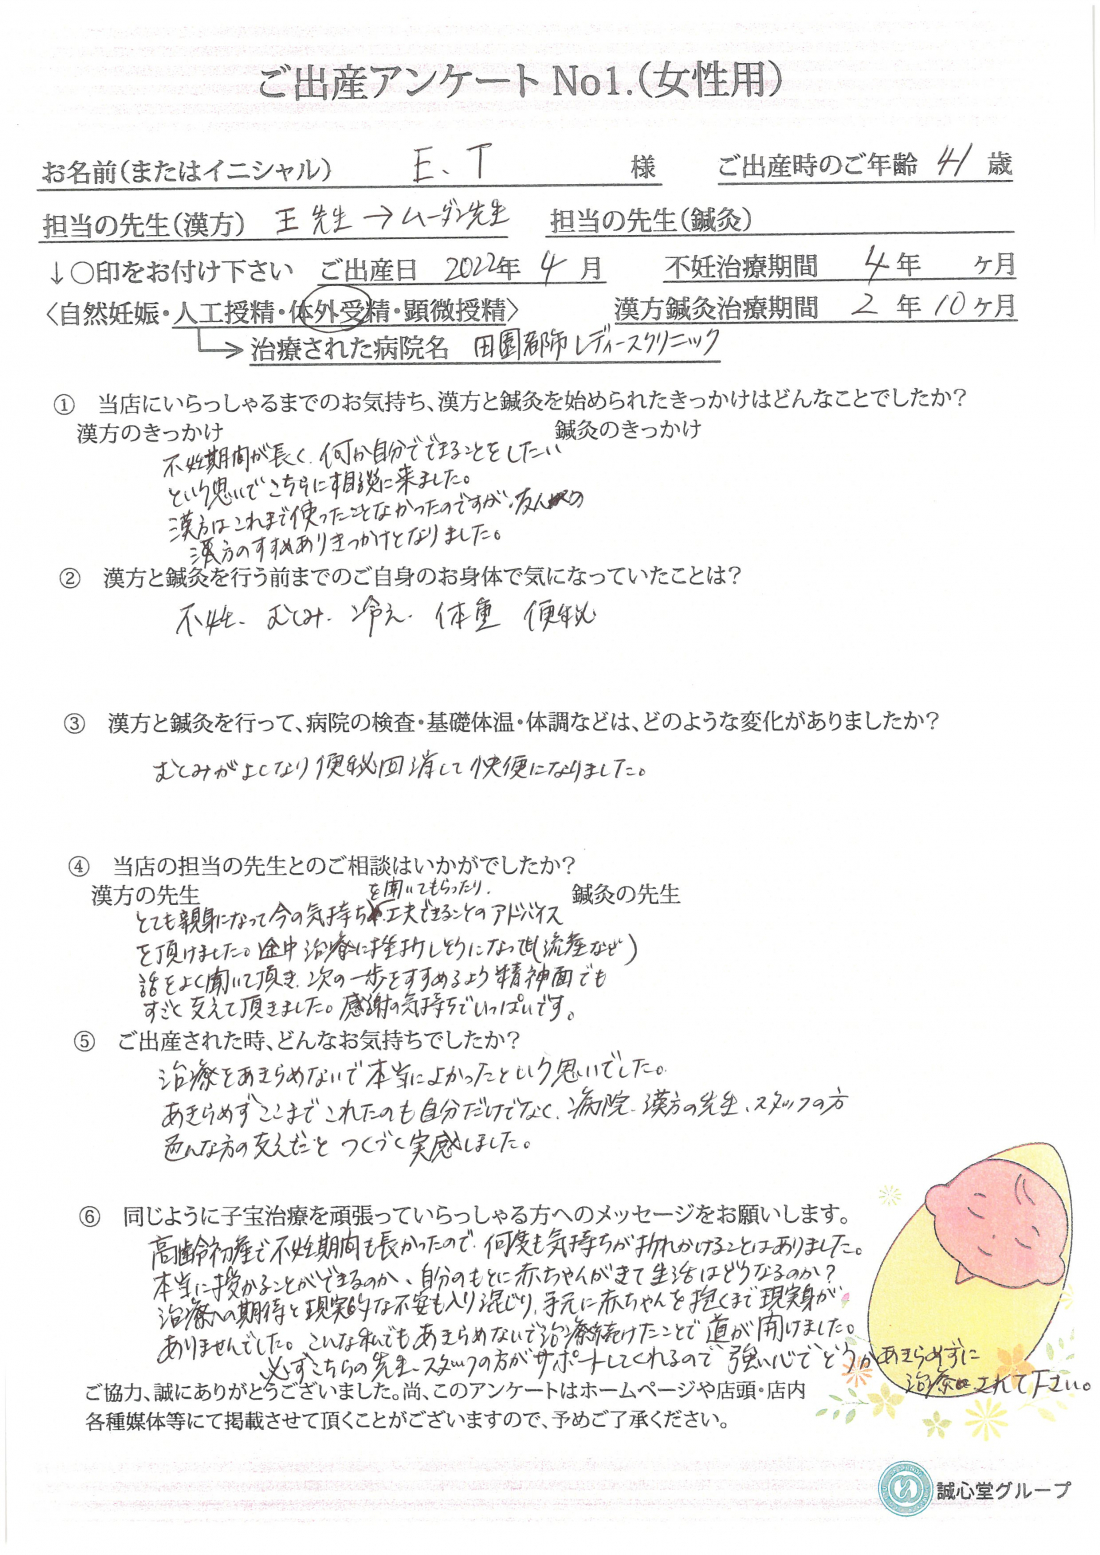 ご出産アンケート No1.(女性用)
お名前(またはイニシャル) E.T 様 ご出産時のご年齢 41 歳
担当の先生(漢方) 王先生→ムーダン先生 担当の先生(鍼灸)
↓○印をお付け下さい ご出産日 2022年 4月 不妊治療期間 4年 ヶ月
〈自然妊娠・人工授精・体外受精・顕微授精〉 漢方鍼灸治療期間 2年10ヶ月
治療された病院名 田園都市レディースクリニック
① 当店にいらっしゃるまでのお気持ち、漢方と鍼灸を始められたきっかけはどんなことでしたか?
漢方のきっかけ 鍼灸のきっかけ
不妊期間が長く、何か自分でできることをしたい
という思いでこちらに相談に来ました。
漢方はこれまで使ったことなかったのですが、友人の
漢方のすすめありきっかけとなりました。
② 漢方と鍼灸を行う前までのご自身のお身体で気になっていたことは?
不妊、むくみ、冷え、体重 便秘
③ 漢方と鍼灸を行って、病院の検査・基礎体温・体調などは、どのような変化がありましたか?
むくみがよくなり便秘回消して快便になりました。
④ 当店の担当の先生とのご相談はいかがでしたか?
漢方の先生 鍼灸の先生
とても親身になって今の気持ちを聞いてもらったり、工夫できることのアドバイス
を頂けました。途中治療に挫折しそうになっても(流産など)
話をよく聞いて頂き、次の一歩をすすめるよう精神面でも
すごく支えて頂きました。感謝の気持ちでいっぱいです。
⑤ ご出産された時、どんなお気持ちでしたか?
治療をあきらめないで本当によかったという思いでした。
あきらめずここまでこれたのも自分だけでなく、病院、漢方の先生、スタッフの方
色んな方の支えだと つくづく実感しました。
⑥ 同じように子宝治療を頑張っていらっしゃる方へのメッセージをお願いします。
高齢初産で不妊期間も長かったので、何度も気持ちが折れかけることはありました。
本当に授かることができるのか、自分のもとに赤ちゃんがきて生活はどうなるのか?
治療への期待と現実的な不安も入り混じり、手元に赤ちゃんを抱くまで現実身が
ありませんでした。こんな私でもあきらめないで治療続けたことで道が開けました。
必ずこちらの先生、スタッフの方がサポートしてくれるので強い心でどうかあきらめずに
治療されて下さい。
ご協力、誠にありがとうございました。尚、このアンケートはホームページや店頭・店内
各種媒体等にて掲載させて頂くことがございますので、予めご了承ください。
誠心堂グループ